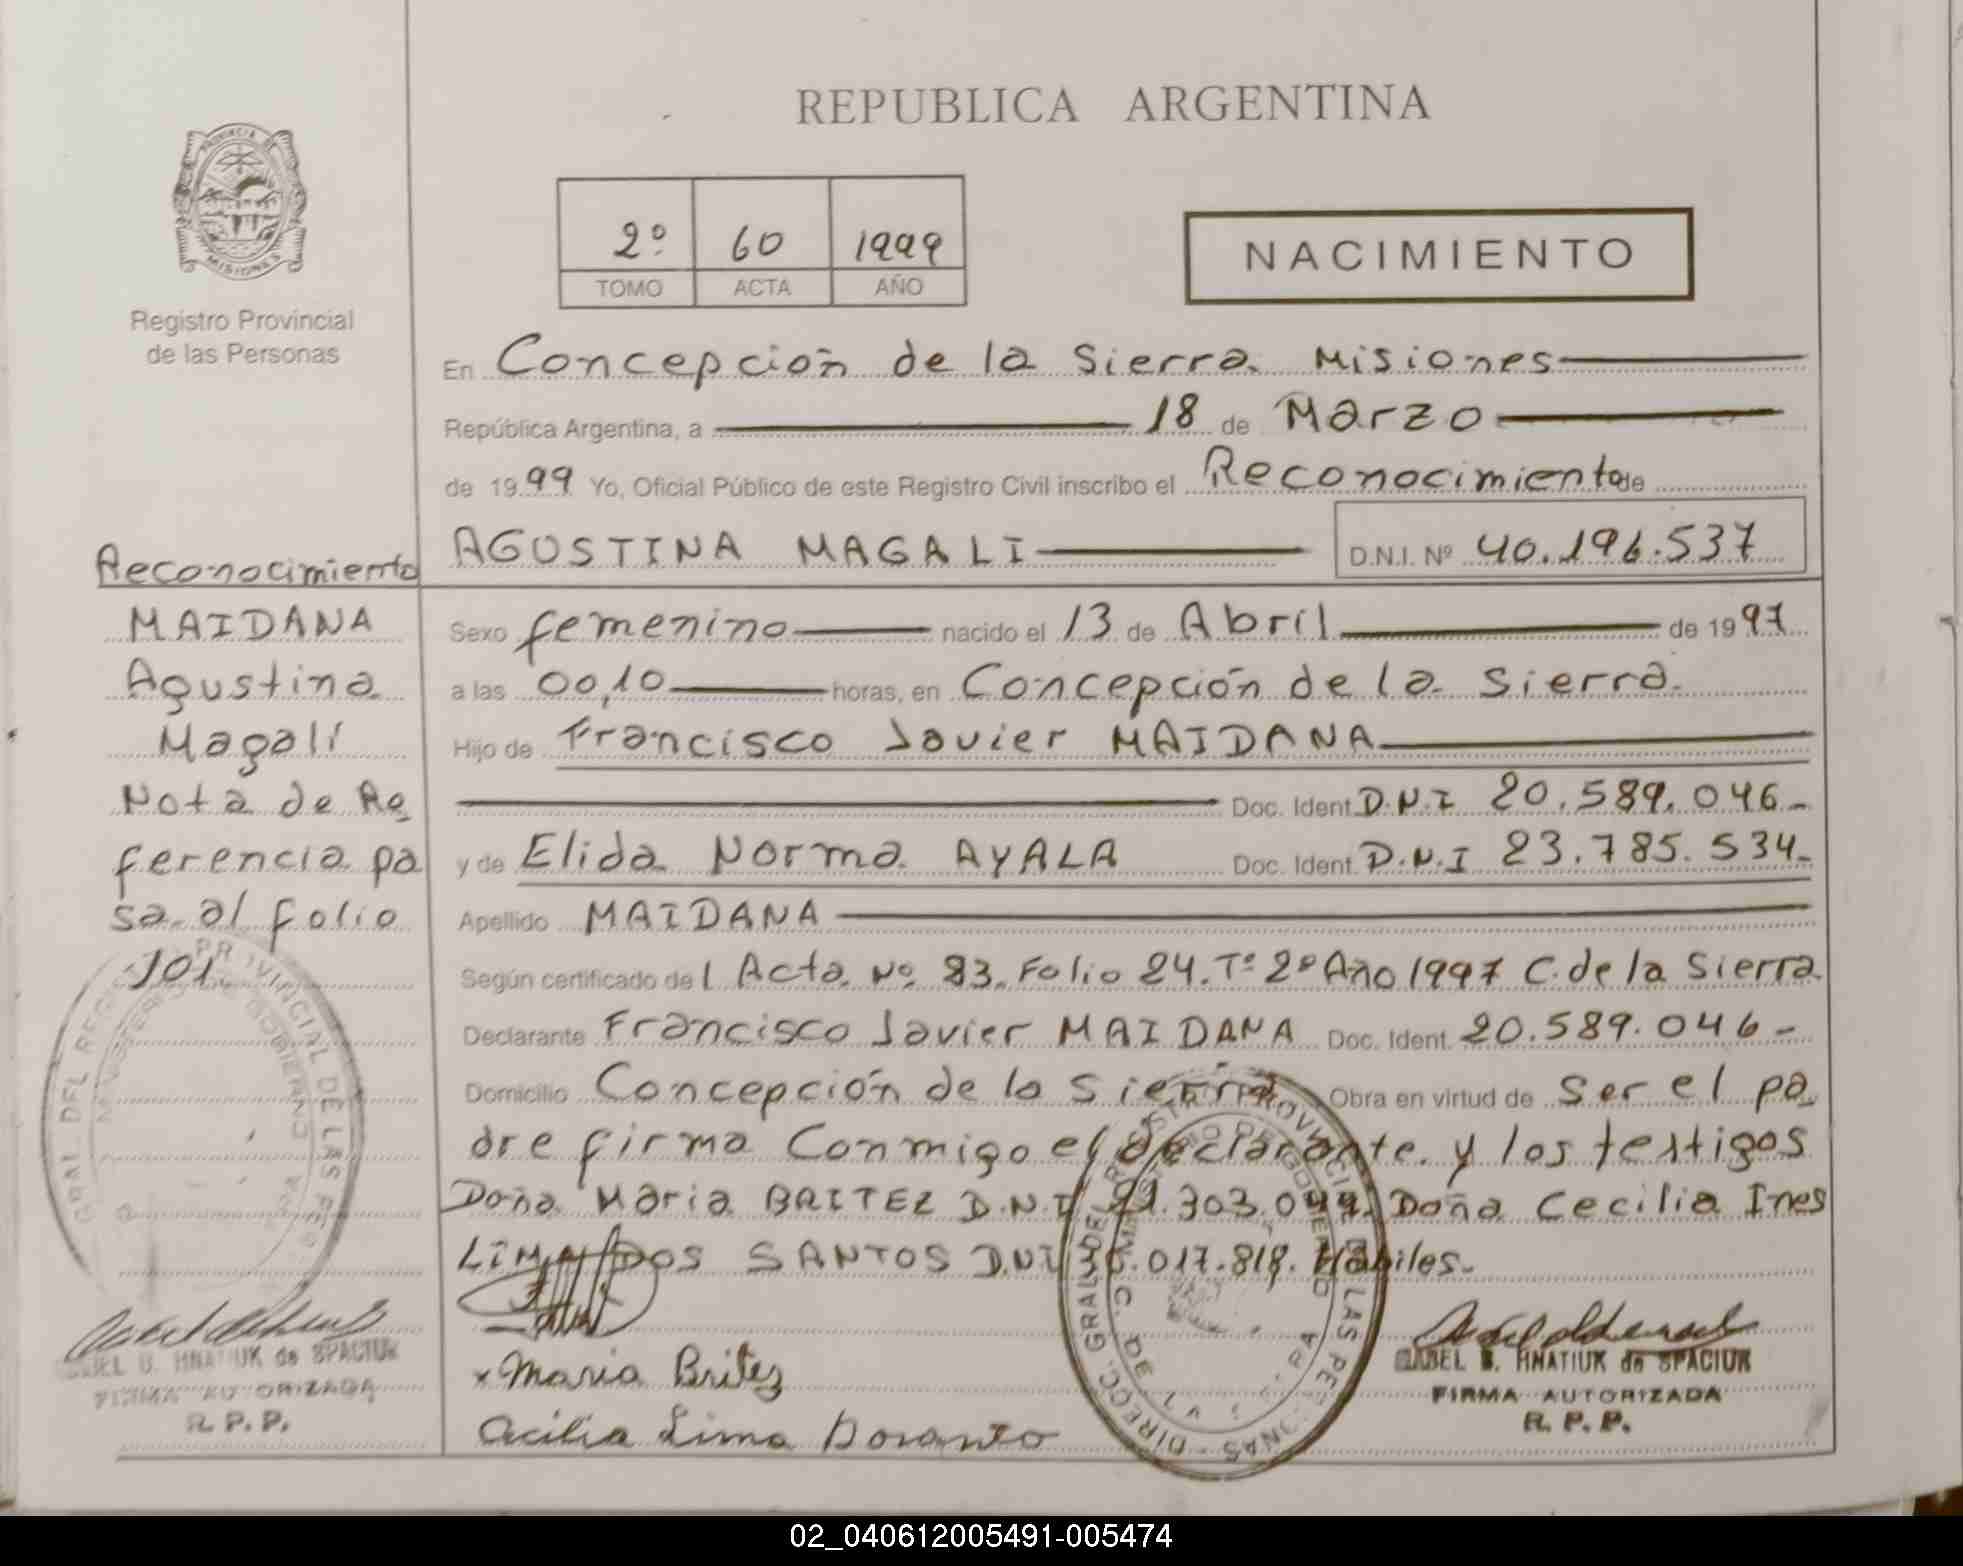 REPUBLICA ARGENTINA
PROVINCIA DE
MISIONES
Registro Provincial
de las Personas
2º 60 1999
TOMO ACTA AÑO
NACIMIENTO
En Concepción de la Sierra Misiones
República Argentina, a 18 de Marzo
de 1999 Yo, Oficial Público de este Registro Civil inscribo el Reconocimiento de
AGUSTINA MAGALI D.N.I. Nº 40.196.537
Reconocimiento
MAIDANA
Agustina
Magalí
Nota de Re
ferencia pa
sa al folio
101.
Sexo femenino nacido el 13 de Abril de 1997
a las 00,10 horas, en Concepción de la Sierra.
Hijo de Francisco Javier MAIDANA
Doc. Ident. D.N.I 20.589.046-
y de Elida Norma AYALA Doc. Ident. D.N.I 23.785.534-
Apellido MAIDANA
Según certificado de l Acta Nº 83. Folio 24. Tº 2º Año 1997 C. de la Sierra
Declarante Francisco Javier MAIDANA Doc. Ident. 20.589.046-
Domicilio Concepción de la Sierra Obra en virtud de Ser el pa
dre firma Conmigo el declarante y los testigos
Doña Maria BRITEZ D.N.I .303.0 Doña Cecilia Ines
LIMA DOS SANTOS D.N.I .017.818. Habiles.
x Maria Britez
Cecilia Lima
HNATIUK de SPACIUK
FIRMA AUTORIZADA
R. P. P.
ISABEL B. HNATIUK de SPACIUK
FIRMA AUTORIZADA
R. P. P.
02_040612005491-005474